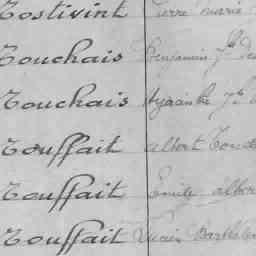 Tostivint Pierre Marie
Touchais Benjamin Jh
Touchais Hyacinthe Jh
Touffait Albert
Touffait Emile Alber
Touffait Lucien Barthele